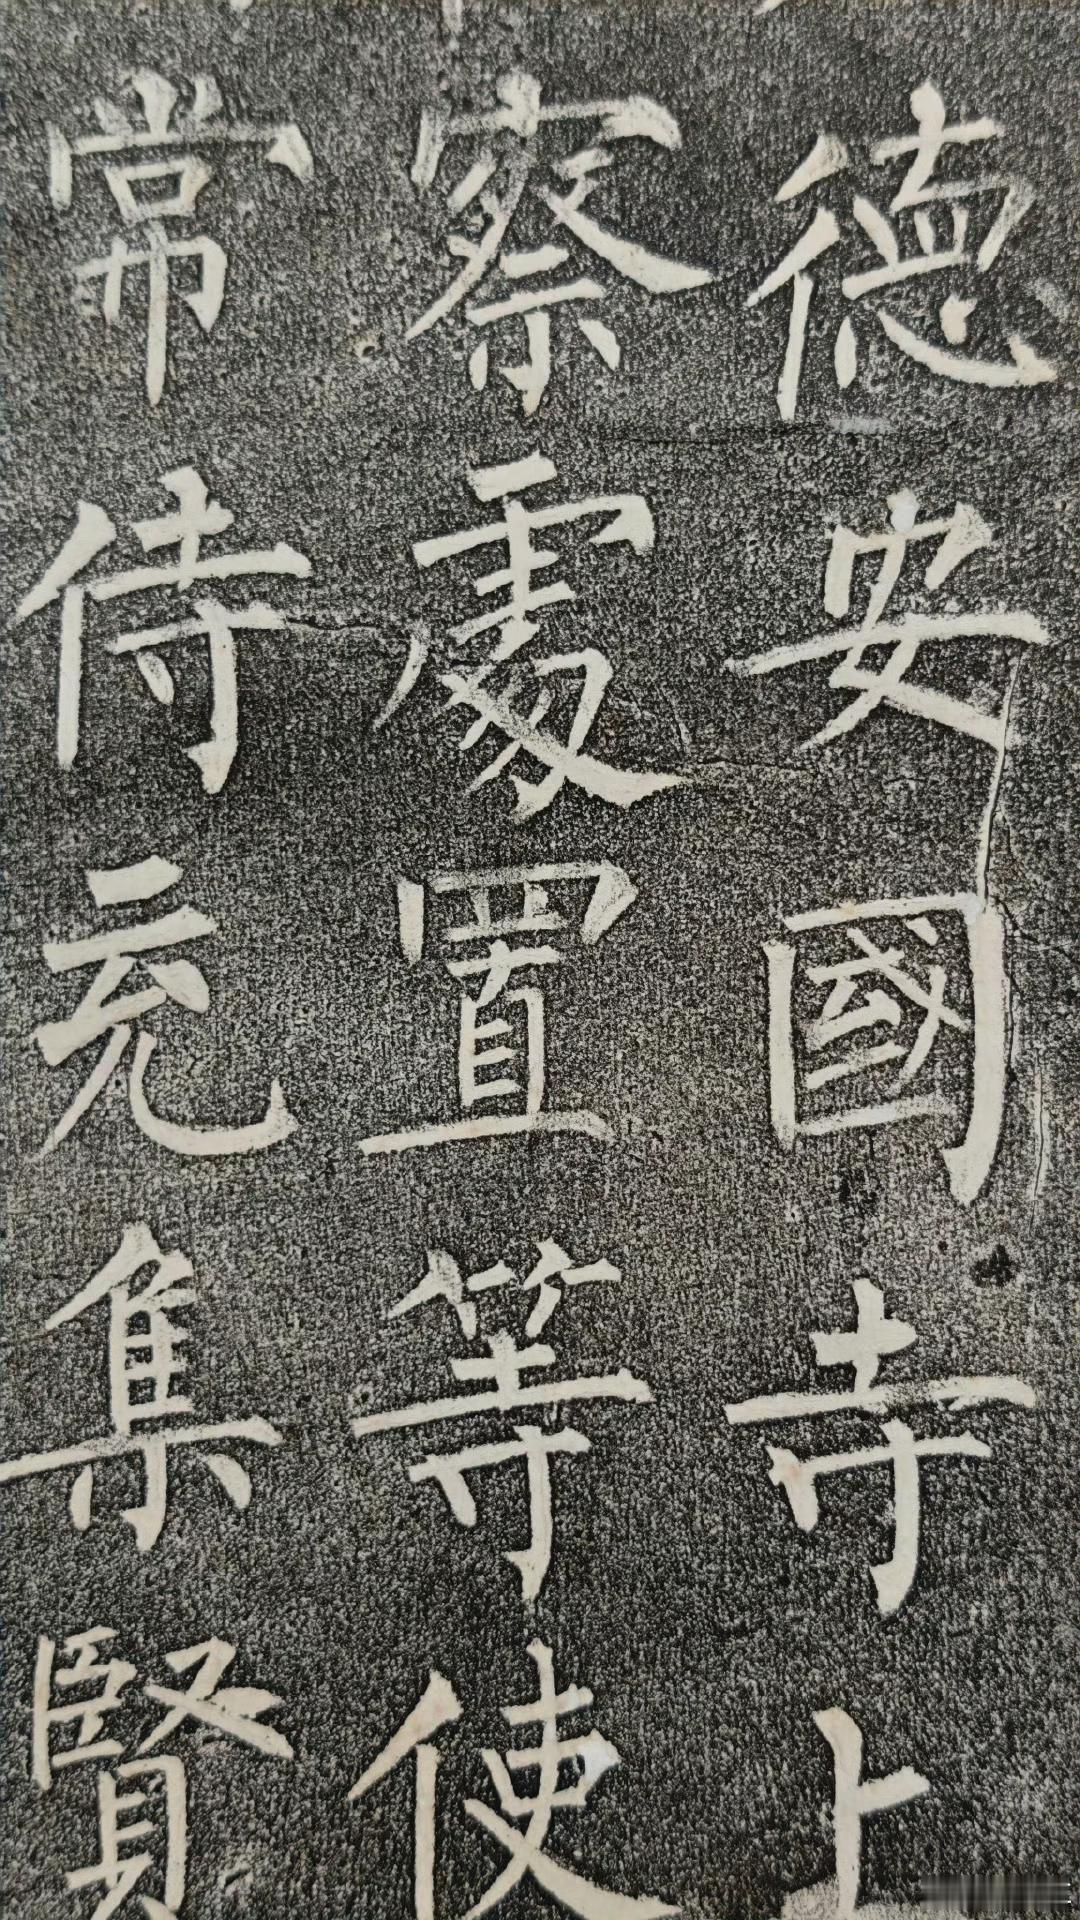 德安國寺上
察處置等使
常侍充集賢